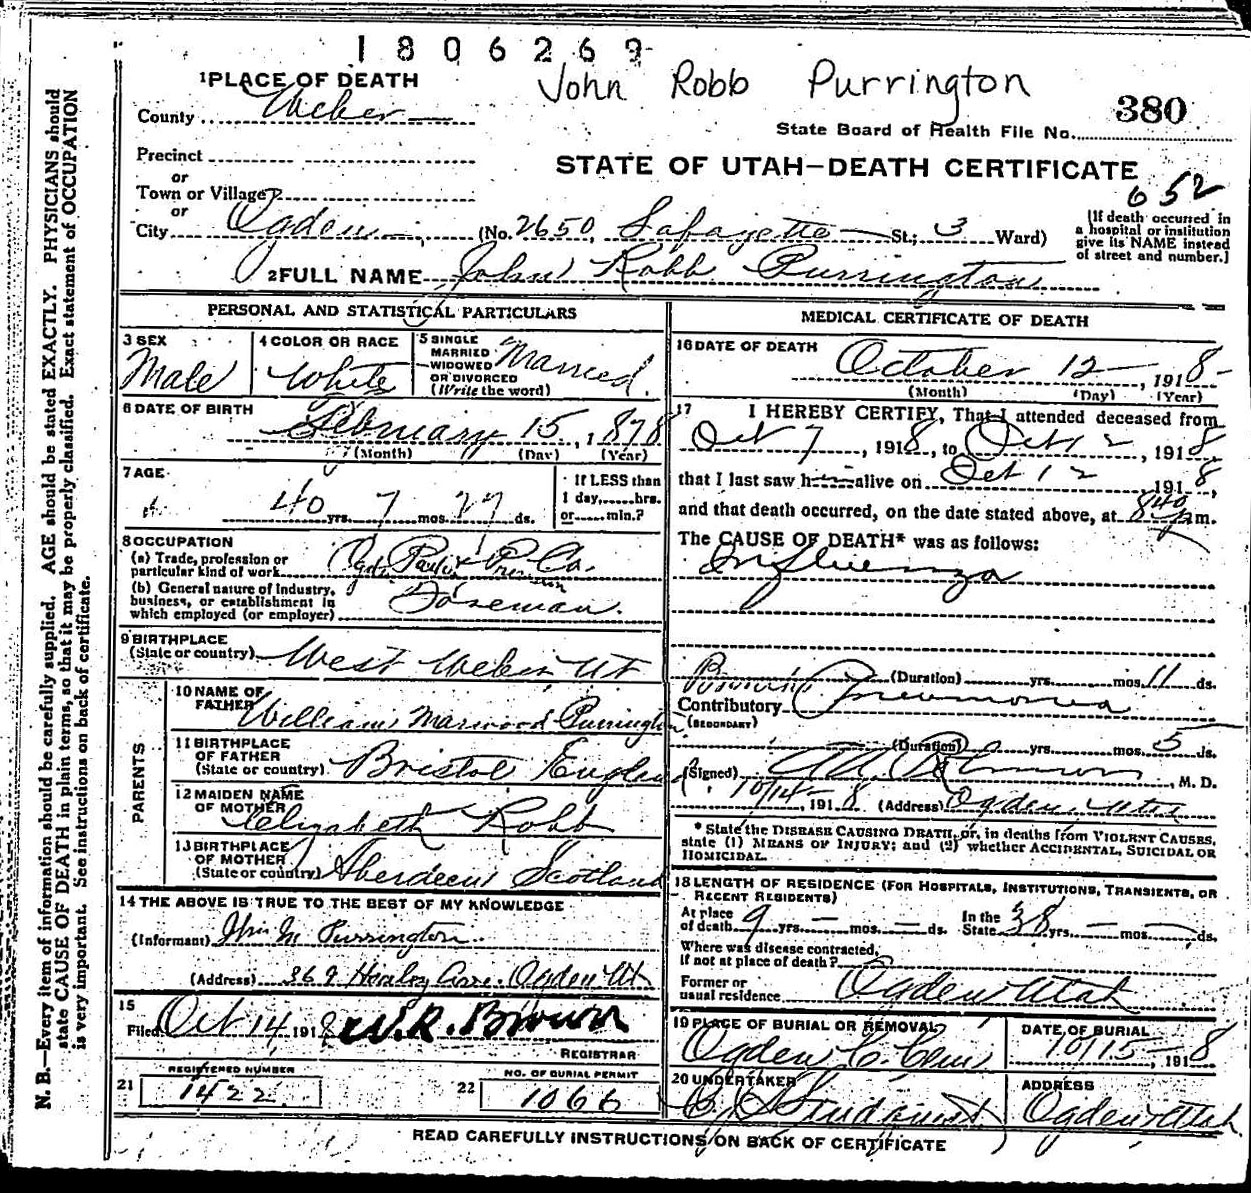 1806269
John Robb Purrington
380
State Board of Health File No.
1 PLACE OF DEATH
County Weber
Precinct
or
Town or Village
or
City Ogden (No. 2650, Lafayette St.; 3 Ward)
STATE OF UTAH—DEATH CERTIFICATE
652
[If death occurred in
a hospital or institution
give its NAME instead
of street and number.]
2 FULL NAME John Robb Purrington
PERSONAL AND STATISTICAL PARTICULARS
3 SEX
Male
4 COLOR OR RACE
White
5 SINGLE
MARRIED
WIDOWED
OR DIVORCED
(Write the word)
Married
6 DATE OF BIRTH
February 15, 1878
(Month) (Day) (Year)
7 AGE
40 yrs. 7 mos. 27 ds.
If LESS than
1 day,......hrs.
or......min.?
8 OCCUPATION
(a) Trade, profession or
particular kind of work Co.
(b) General nature of industry,
business, or establishment in
which employed (or employer) Foreman.
9 BIRTHPLACE
(State or country) West Weber Ut
PARENTS
10 NAME OF
FATHER William Marwood Purrington
11 BIRTHPLACE
OF FATHER
(State or country) Bristol England
12 MAIDEN NAME
OF MOTHER Elizabeth Robb
13 BIRTHPLACE
OF MOTHER
(State or country) Aberdeen Scotland
14 THE ABOVE IS TRUE TO THE BEST OF MY KNOWLEDGE
(Informant) Wm M Purrington
(Address) 369 Ave. Ogden Ut
15
Filed Oct 14 1918 W.R. Brown
REGISTRAR
21 REGISTERED NUMBER
1422
22 NO. OF BURIAL PERMIT
1066
MEDICAL CERTIFICATE OF DEATH
16 DATE OF DEATH
October 12, 1918
(Month) (Day) (Year)
17 I HEREBY CERTIFY, That I attended deceased from
Oct 7, 1918, to Oct 12, 1918
that I last saw h alive on Oct 12, 1918,
and that death occurred, on the date stated above, at m.
The CAUSE OF DEATH* was as follows:
Influenza
(Duration) yrs. mos. 11 ds.
Contributory Pneumonia
(SECONDARY)
(Duration) yrs. mos. 5 ds.
(Signed) , M. D.
10/14-, 1918 (Address) Ogden, Utah
* State the DISEASE CAUSING DEATH, or, in deaths from VIOLENT CAUSES,
state (1) MEANS OF INJURY; and (2) whether ACCIDENTAL, SUICIDAL OR
HOMICIDAL.
18 LENGTH OF RESIDENCE (FOR HOSPITALS, INSTITUTIONS, TRANSIENTS, OR
RECENT RESIDENTS)
At place
of death 9 yrs. — mos. — ds.
In the
State 38 yrs. — mos. — ds.
Where was disease contracted,
if not at place of death?
Former or
usual residence Ogden Utah
19 PLACE OF BURIAL OR REMOVAL
Ogden C. Cem
DATE OF BURIAL
10/15-, 1918
20 UNDERTAKER
ADDRESS
Ogden Utah
READ CAREFULLY INSTRUCTIONS ON BACK OF CERTIFICATE
N. B.—Every item of information should be carefully supplied. AGE should be stated EXACTLY. PHYSICIANS should
state CAUSE OF DEATH in plain terms, so that it may be properly classified. Exact statement of OCCUPATION
is very important. See instructions on back of certificate.